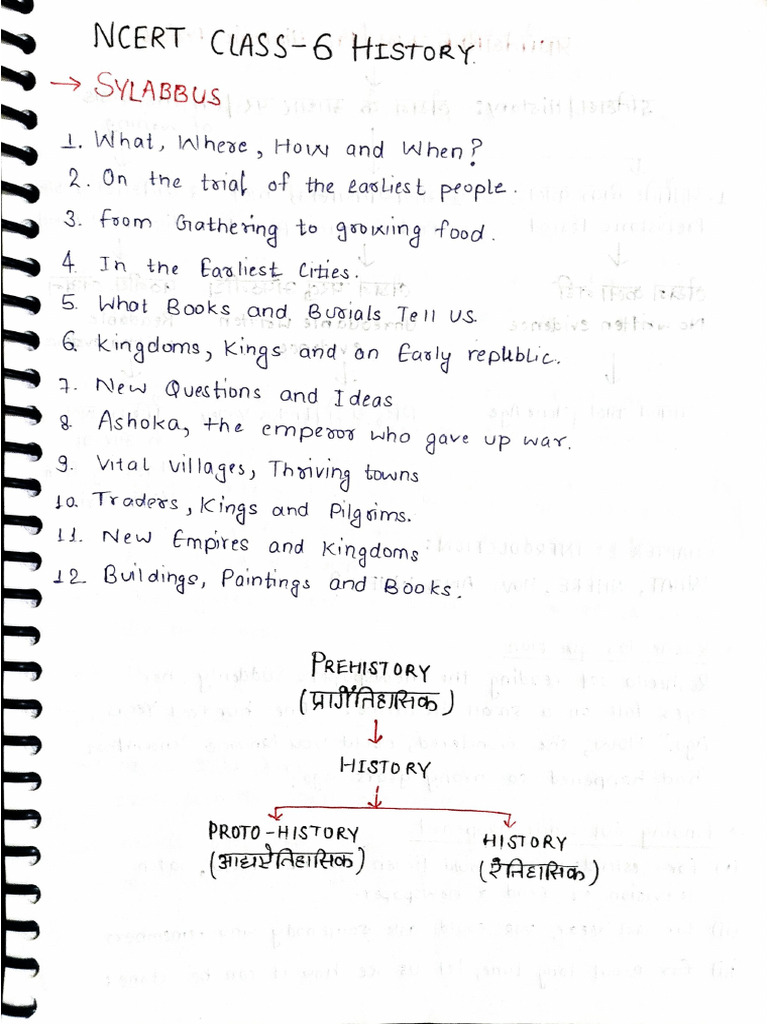 NCERT CLASS-6 HISTORY.
→ SYLABBUS
1. What, Where, How and When?
2. On the trial of the earliest people.
3. From Gathering to growing food.
4. In the Earliest Cities.
5. What Books and Burials Tell us.
6. Kingdoms, Kings and an Early republic.
7. New Questions and Ideas
8. Ashoka, the emperor who gave up war.
9. Vital villages, Thriving towns
10. Traders, Kings and Pilgrims.
11. New Empires and Kingdoms
12. Buildings, Paintings and Books.
PREHISTORY
(प्रागैतिहासिक)
↓
HISTORY
PROTO-HISTORY HISTORY
(आद्यऐतिहासिक) (ऐतिहासिक)